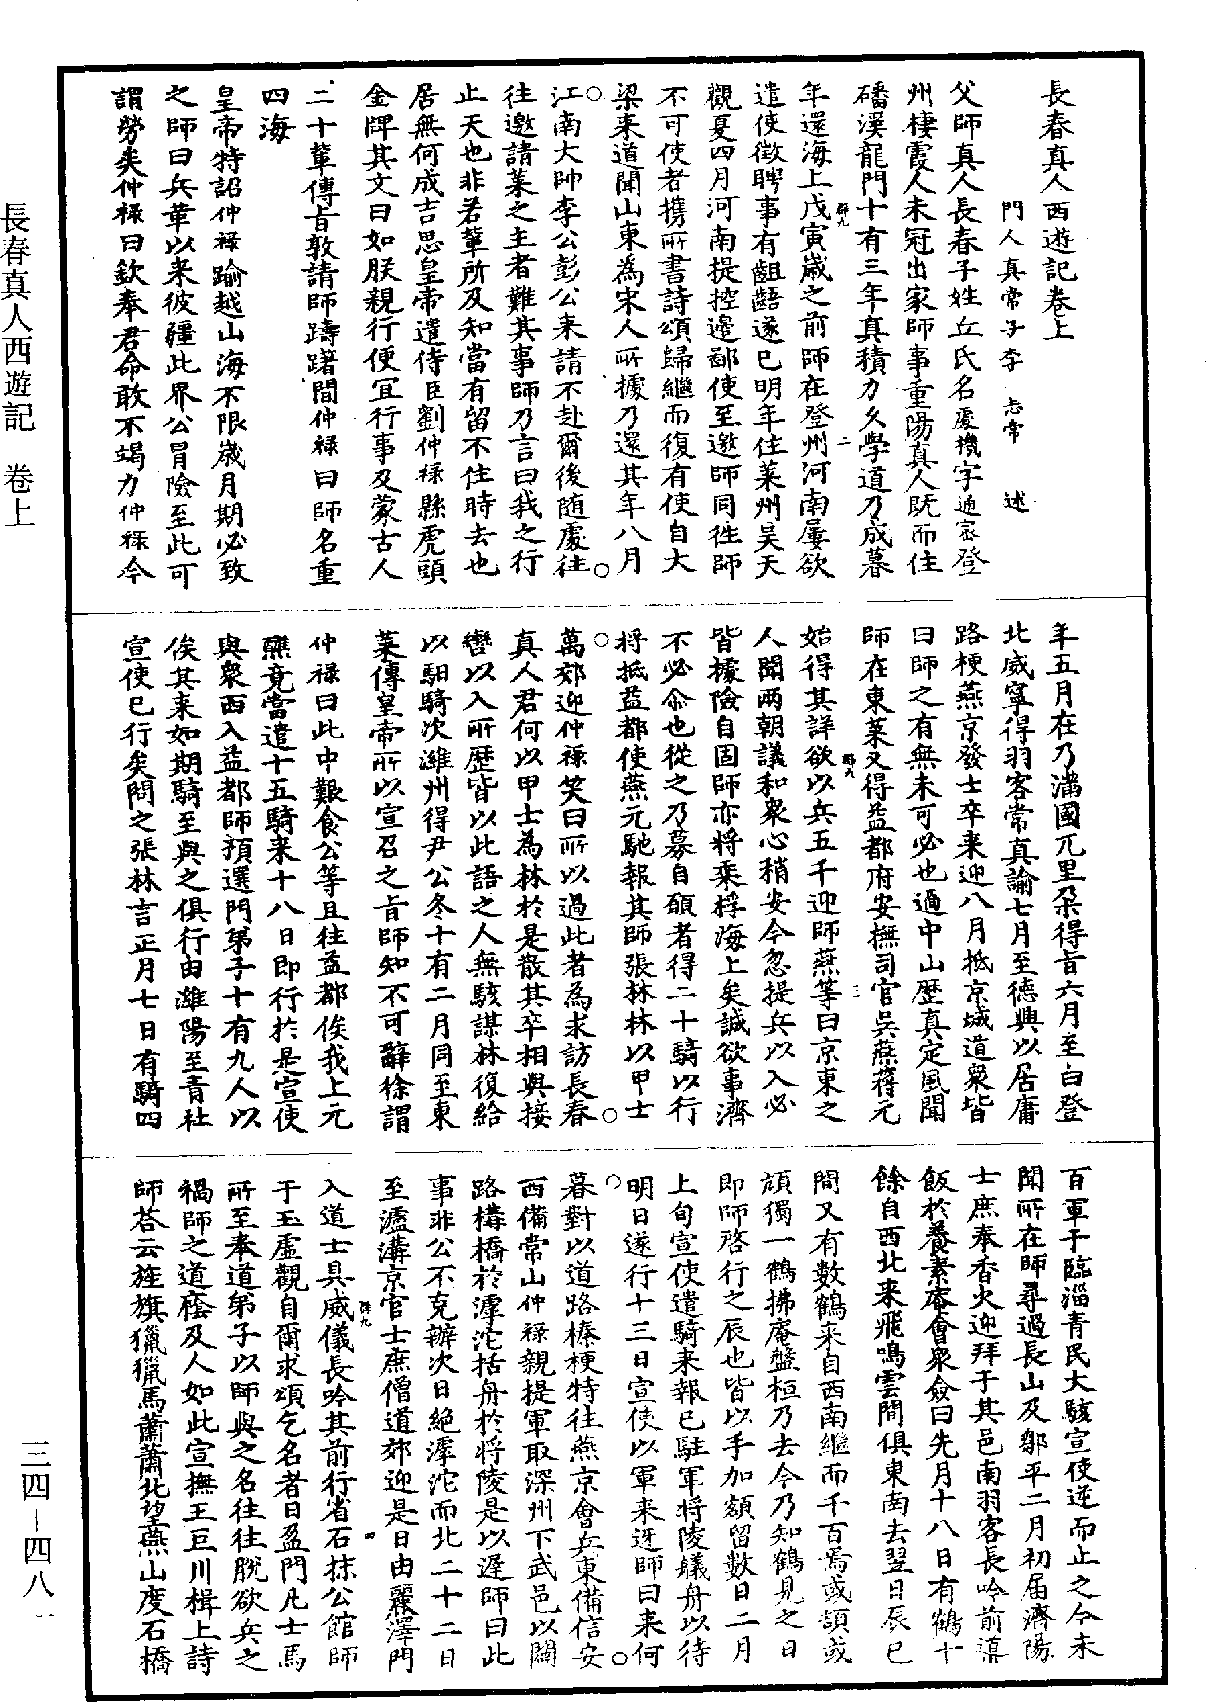 長春真人西遊記卷上
門人真常子李志常述
父師真人長春子姓丘氏名處機字通密登
州棲霞人未冠出家師事重陽真人既而住
磻溪龍門十有三年真積力久學道乃成暮
年還海上戊寅歲之前師在登州河南屢欲
遣使徵聘事有齟齬遂已明年住萊州昊天
觀夏四月河南提控邊鄙使至邀師同往師
不可使者攜所書詩頌歸繼而復有使自大
梁來道聞山東為宋人所據乃還其年八月
江南大帥李公彭公來請不赴爾後隨處往
往邀請萊之主者難其事師乃言曰我之行
止天也非若輩所及知當有留不住時去也
居無何成吉思皇帝遣侍臣劉仲祿縣虎頭
金牌其文曰如朕親行便宜行事及蒙古人
二十輩傳旨敦請師躊躇間仲祿曰師名重
四海
皇帝特詔仲祿踰越山海不限歲月期必致
之師曰兵革以來彼疆此界公冒險至此可
謂勞矣仲祿曰欽奉君命敢不竭力仲祿今
年五月在乃滿國兀里朶得旨六月至白登
北威寧得羽客常真諭七月至德興以居庸
路梗燕京發士卒來迎八月抵京城道衆皆
曰師之有無未可必也過中山歷真定風聞
師在東萊又得益都府安撫司官吳燕蔣元
始得其詳欲以兵五千迎師燕等曰京東之
人聞兩朝議和衆心稍安今忽提兵以入必
皆據險自固師亦將乘桴海上矣誠欲事濟
不必爾也從之乃募自願者得二十騎以行
將抵益都使燕元馳報其師張林林以甲士
萬郊迎仲祿笑曰所以過此者為求訪長春
真人君何以甲士為林於是散其卒相與接
轡以入所歷皆以此語之人無駭謀林復給
以馹騎次濰州得尹公冬十有二月同至東
萊傳皇帝所以宣召之旨師知不可辭徐謂
仲祿曰此中艱食公等且往益都俟我上元
醮竟當遣十五騎來十八日即行於是宣使
與衆西入益都師預選門弟子十有九人以
俟其來如期騎至與之俱行由濰陽至青社
宣使已行矣問之張林言正月七日有騎四
百軍于臨淄青民大駭宣使逆而止之今未
聞所在師尋過長山及鄒平二月初屆濟陽
士庶奉香火迎拜于其邑南羽客長吟前導
飯於養素庵會衆僉曰先月十八日有鶴十
餘自西北來飛鳴雲間俱東南去翌日辰巳
間又有數鶴來自西南繼而千百焉或頡或
頏獨一鶴拂庵盤桓乃去今乃知鶴見之日
即師啓行之辰也皆以手加額留數日二月
上旬宣使遣騎來報已駐軍將陵艤舟以待
明日遂行十三日宣使以軍來迓師曰來何
暮對以道路榛梗特往燕京會兵東備信安
西備常山仲祿親提軍取深州下武邑以闢
路構橋於滹沱括舟於將陵是以遲師曰此
事非公不克辦次日絕滹沱而北二十二日
至瀘溝京官士庶僧道郊迎是日由麗澤門
入道士具威儀長吟其前行省石抹公館師
于玉虛觀自爾求頌乞名者日盈門凡士馬
所至奉道弟子以師與之名往往脫欲兵之
禍師之道廕及人如此宣撫王巨川楫上詩
師荅云旌旗獵獵馬蕭蕭北望燕山度石橋
長春真人西遊記　卷上
三四－四八一